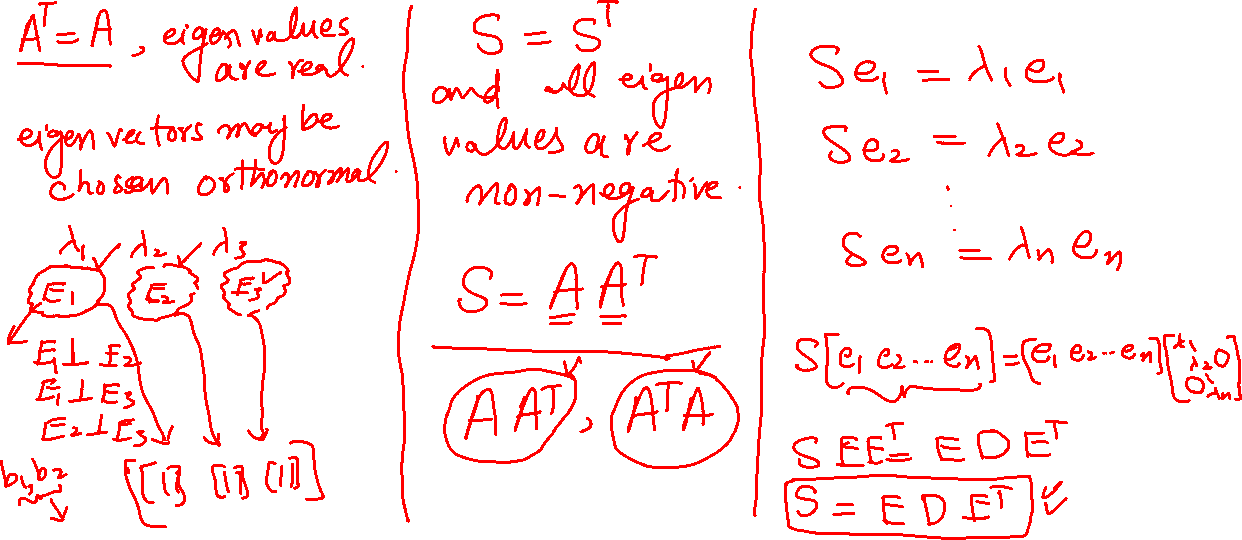 Aᵀ = A , eigen values
are real.
eigen vectors may be
chosen orthonormal.
λ₁ λ₂ λ₃
E₁ E₂ E₃
E₁ ⊥ E₂
E₁ ⊥ E₃
E₂ ⊥ E₃
b₁, b₂
S = Sᵀ
and all eigen
values are
non-negative.
S = A Aᵀ
A Aᵀ , AᵀA
Se₁ = λ₁e₁
Se₂ = λ₂e₂
⋮
Seₙ = λₙ eₙ
S[e₁ e₂ ... eₙ] = [e₁ e₂ ... eₙ][λ₁ λ₂ 0 0 ⋱ λₙ]
S E Eᵀ = E D Eᵀ
S = E D Eᵀ